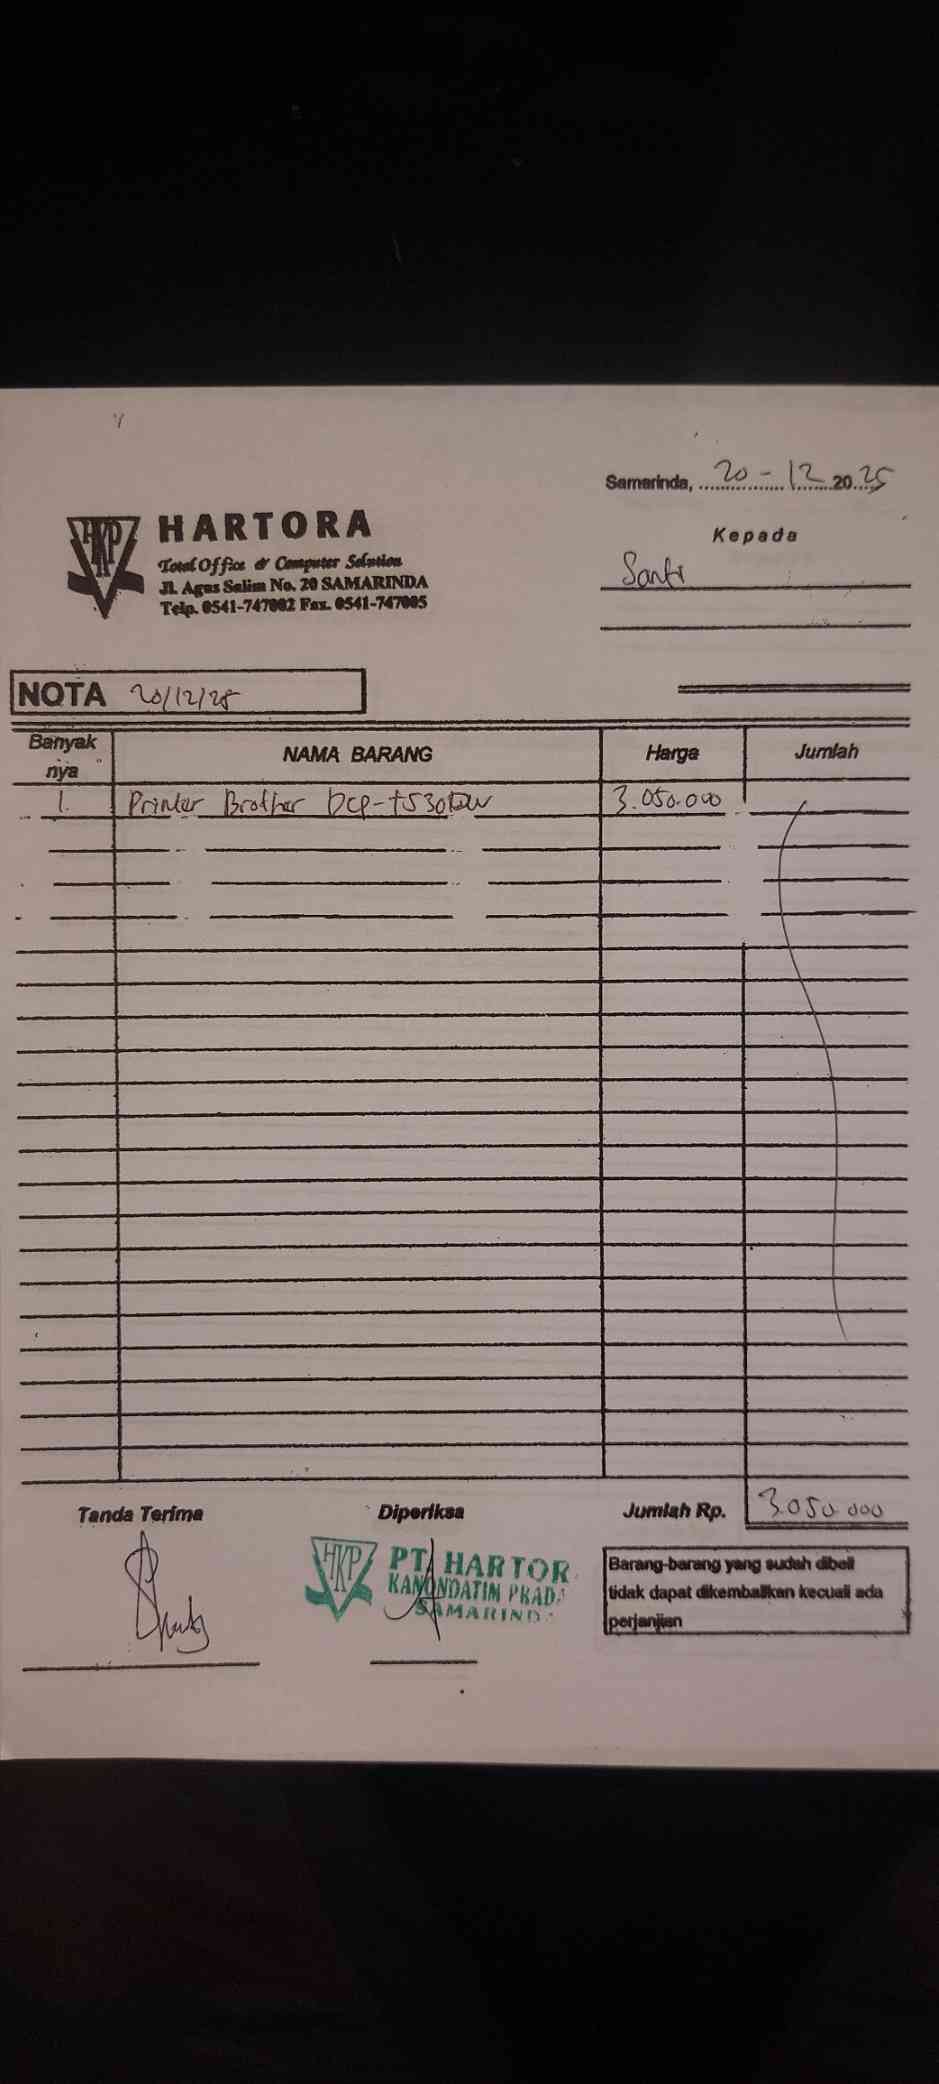 Samarinda, 20 - 12 2025
HKP
HARTORA
Total Office & Computer Solution
Jl. Agus Salim No. 20 SAMARINDA
Telp. 0541-747002 Fax. 0541-747005
Kepada
Santi
NOTA 20/12/25
Banyak nya NAMA BARANG Harga Jumlah
1. Printer Brother DCP-T530DW 3.050.000
Tanda Terima Diperiksa Jumlah Rp. 3.050.000
HKP PT. HARTOR
KAMONDATIM PRADA
SAMARINDA
Barang-barang yang sudah dibeli
tidak dapat dikembalikan kecuali ada
perjanjian